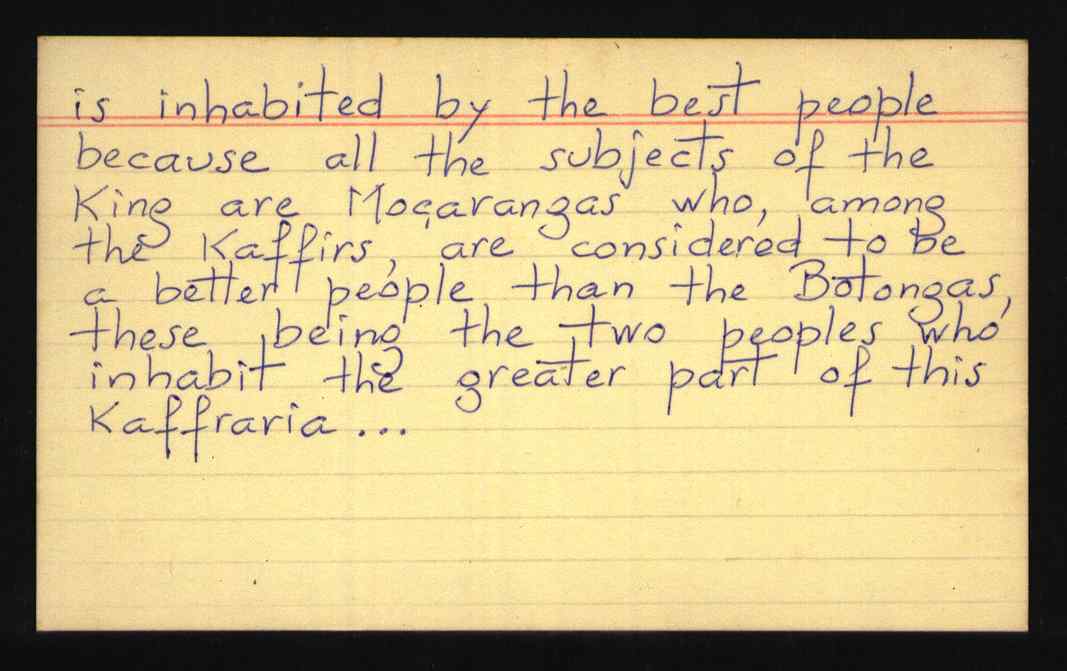 is inhabited by the best people
because all the subjects of the
King are Moçarangas who, among
the Kaffirs, are considered to be
a better people than the Botongas,
these being the two peoples who
inhabit the greater part of this
Kaffraria ...